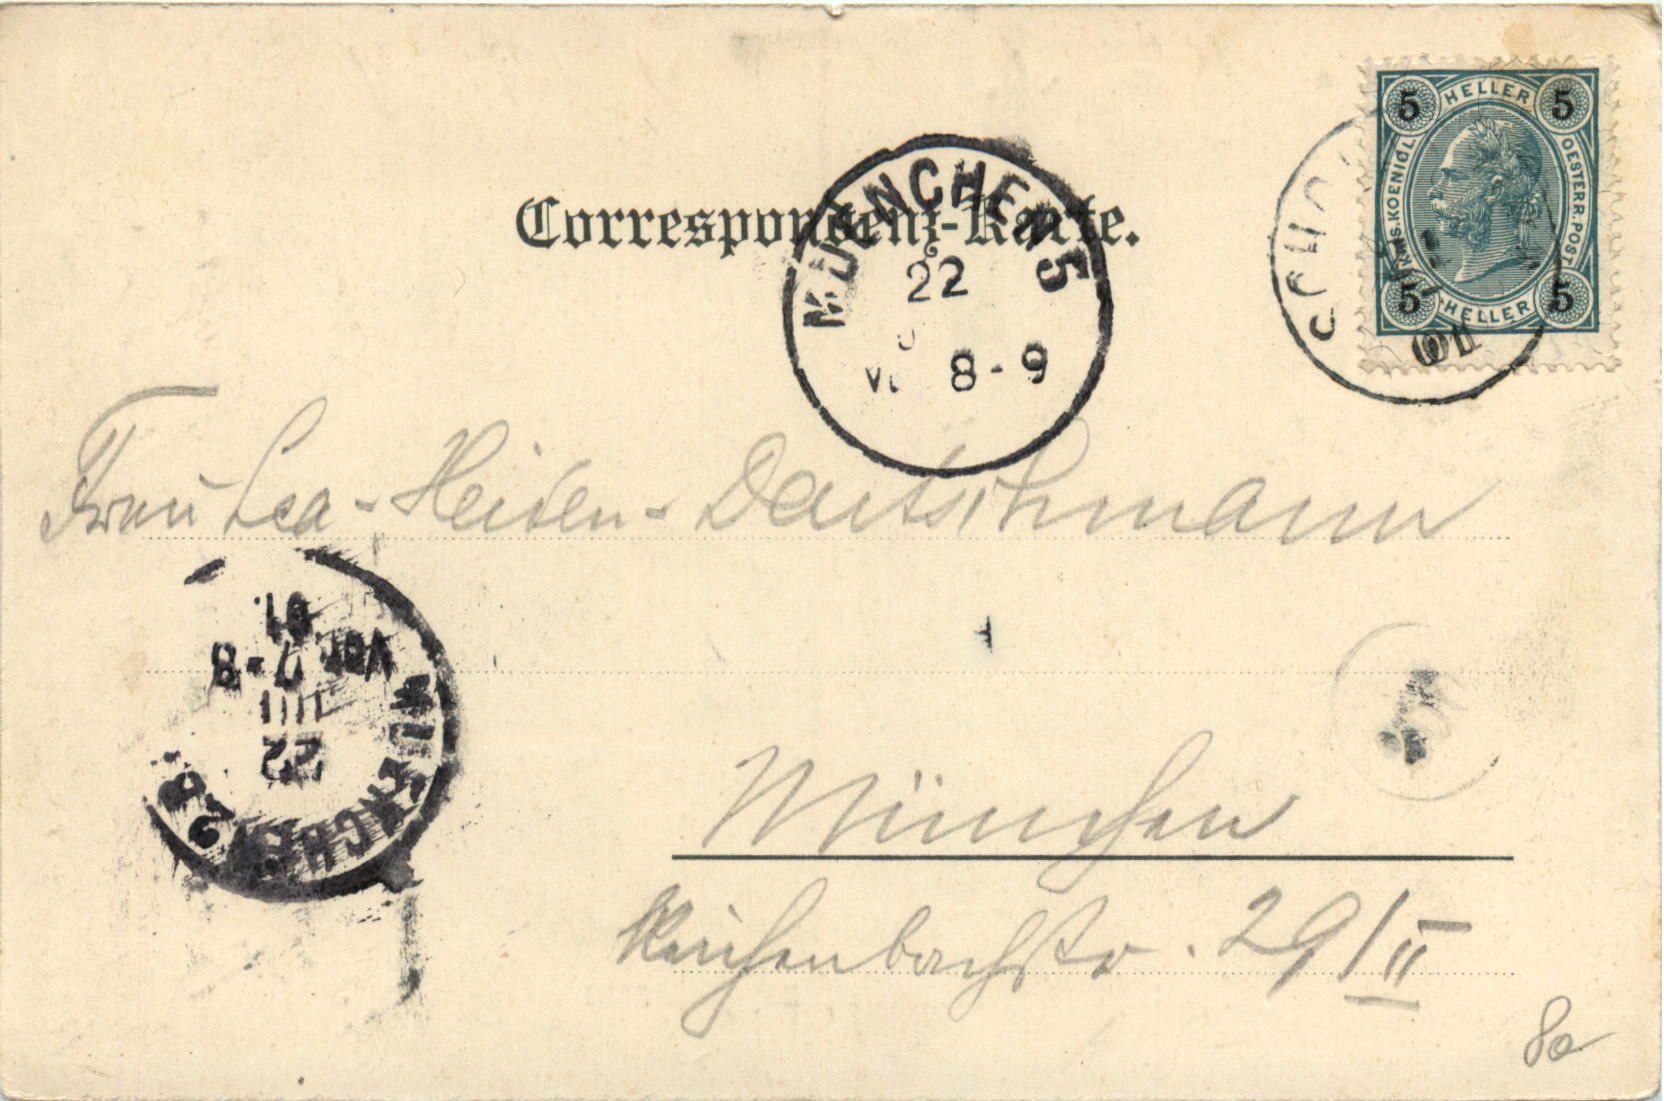 Correspondenz-Karte.
5 HELLER 5
KAIS. KOENIGL.
OESTERR. POST.
5 HELLER 5
MÜNCHEN 5
22
8-9
Frau Lea-Heiden-Deutschmann
MUENCHEN 2 B.
22
VIII
Vor. 7-8
01.
München
Reichenbachstr. 29/II
80